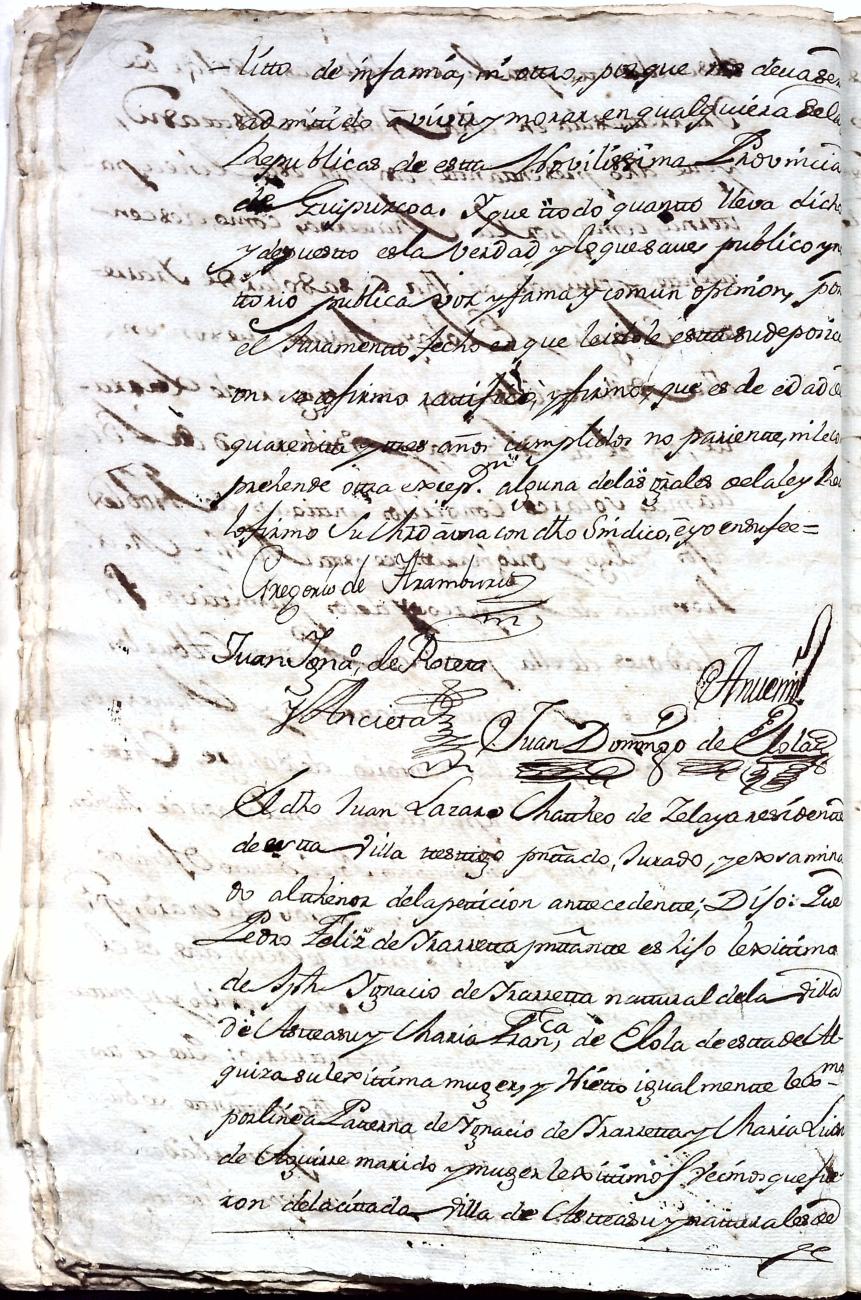 litto de infamia, ni otro, porque no deva ser
admitido a vivir y morar en qualquiera de la
Republicas de esta Novilissima Provincia
de Guipuzcoa. Y que ttodo quantto lleva dicho
y depuestto es la verdad y lo que save, publico y no
ttorio publica voz y fama y comun opinion, por
el Juramentto fecho en que leidole esta su deposici
on se afirmo rattifico, y firmo, que es de edad de
quarentta y ttres años cumplidos no pariente, ni le co
prehende otra excepn. alguna de las grales de la ley Rl
lo firmo Su Mrd a una con dho Sindico, e yo en su fee =
Gregorio de Aramburu
Juan Igno. de Roteta
y Ancieta
Antemi
Juan Domingo de Elola
El dho Juan Lazaro Matheo de Zelaya residente
de estta villa ttesttigo pnttado, Jurado, y examina
do al thenor de la peticion anttecedentte; Dijo: Que
Pedro Feliz de Ytarretta pnttante es hijo lexittimo
de Jph Ygnacio de Ytarretta natural de la villa
de Astteasu y Maria Franca, de Elola de estta de Al-
quiza su lexittima muger, y Nietto igualmentte lexmo
por linea Patterna de Ygnacio de Ytarretta y Maria
de Aguirre marido y muger lexittimos vecinos que fue
ron de la cittada villa de Astteasu y natturales de